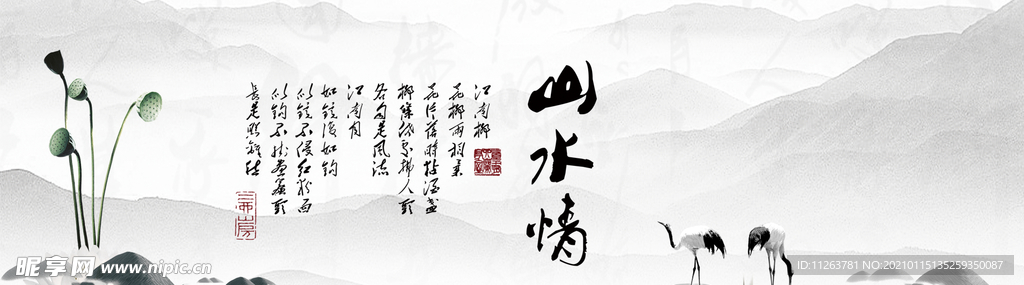 山水情
江南柳
花柳两相柔
花片落时粘酒盏
柳条低处拂人头
各自是风流
江南月
如镜复如钩
似镜不侵红粉面
似钩不挂画帘头
长是照离愁
昵享网 www.nipic.cn
ID:11263781 NO:20210115135259350087